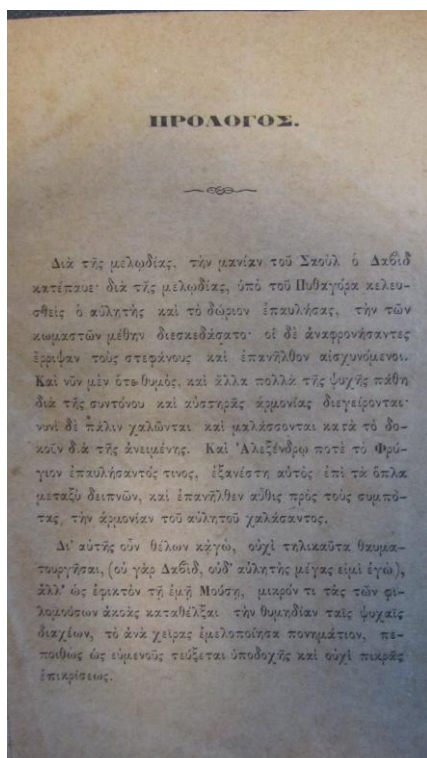 ΠΡΟΛΟΓΟΣ.
Διὰ τῆς μελωδίας, τὴν μανίαν τοῦ Σαοὺλ ὁ Δαβὶδ
κατέπαυε· διὰ τῆς μελωδίας, ὑπὸ τοῦ Πυθαγόρα κελευ-
σθεὶς ὁ αὐλητὴς καὶ τὸ δώριον ἐπαυλήσας, τὴν τῶν
κωμαστῶν μέθην διεσκεδάσατο· οἱ δὲ ἀναφρονήσαντες
ἔρριψαν τοὺς στεφάνους καὶ ἐπανῆλθον αἰσχυνόμενοι.
Καὶ νῦν μὲν ὅτε θυμὸς, καὶ ἄλλα πολλὰ τῆς ψυχῆς πάθη
διὰ τῆς συντόνου καὶ αὐστηρᾶς ἁρμονίας διεγείρονται·
νυνὶ δὲ πάλιν χαλῶνται καὶ μαλάσσονται κατὰ τὸ δο-
κοῦν διὰ τῆς ἀνειμένης. Καὶ Ἀλεξάνδρῳ ποτὲ τὸ Φρύ-
γιον ἐπαυλήσαντός τινος, ἐξανέστη αὐτὸς ἐπὶ τὰ ὅπλα
μεταξὺ δειπνῶν, καὶ ἐπανῆλθεν αὖθις πρὸς τοὺς συμπό-
τας, τὴν ἁρμονίαν τοῦ αὐλητοῦ χαλάσαντος.
Δι' αὐτῆς οὖν θέλων κἀγὼ, οὐχὶ τηλικαῦτα θαυμα-
τουργῆσαι, (οὐ γὰρ Δαβὶδ, οὐδ' αὐλητὴς μέγας εἰμὶ ἐγὼ),
ἀλλ' ὡς ἐφικτὸν τῇ ἐμῇ Μούσῃ, μικρόν τι τὰς τῶν φι-
λομούσων ἀκοὰς καταθέλξαι τὴν θυμηδίαν ταῖς ψυχαῖς
διαχέων, τὸ ἀνὰ χεῖρας ἐμελοποίησα πονημάτιον, πε-
ποιθὼς ὡς εὐμενοῦς τεύξεται ὑποδοχῆς καὶ οὐχὶ πικρᾶς
ἐπικρίσεως.